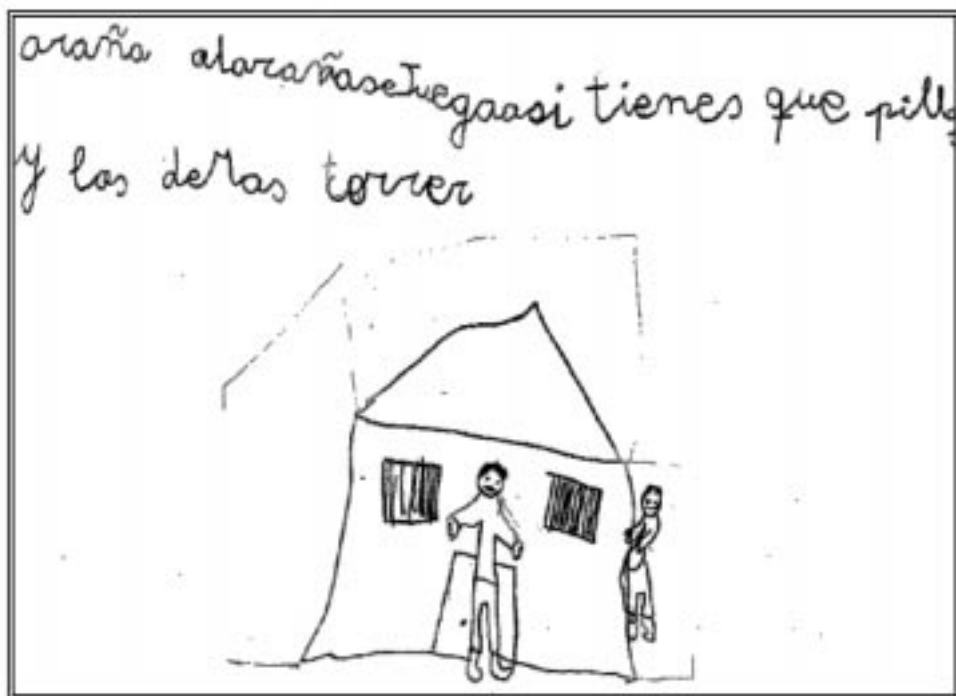 araña alarañasejuegaasi tienes que pilla
y los demas torrer